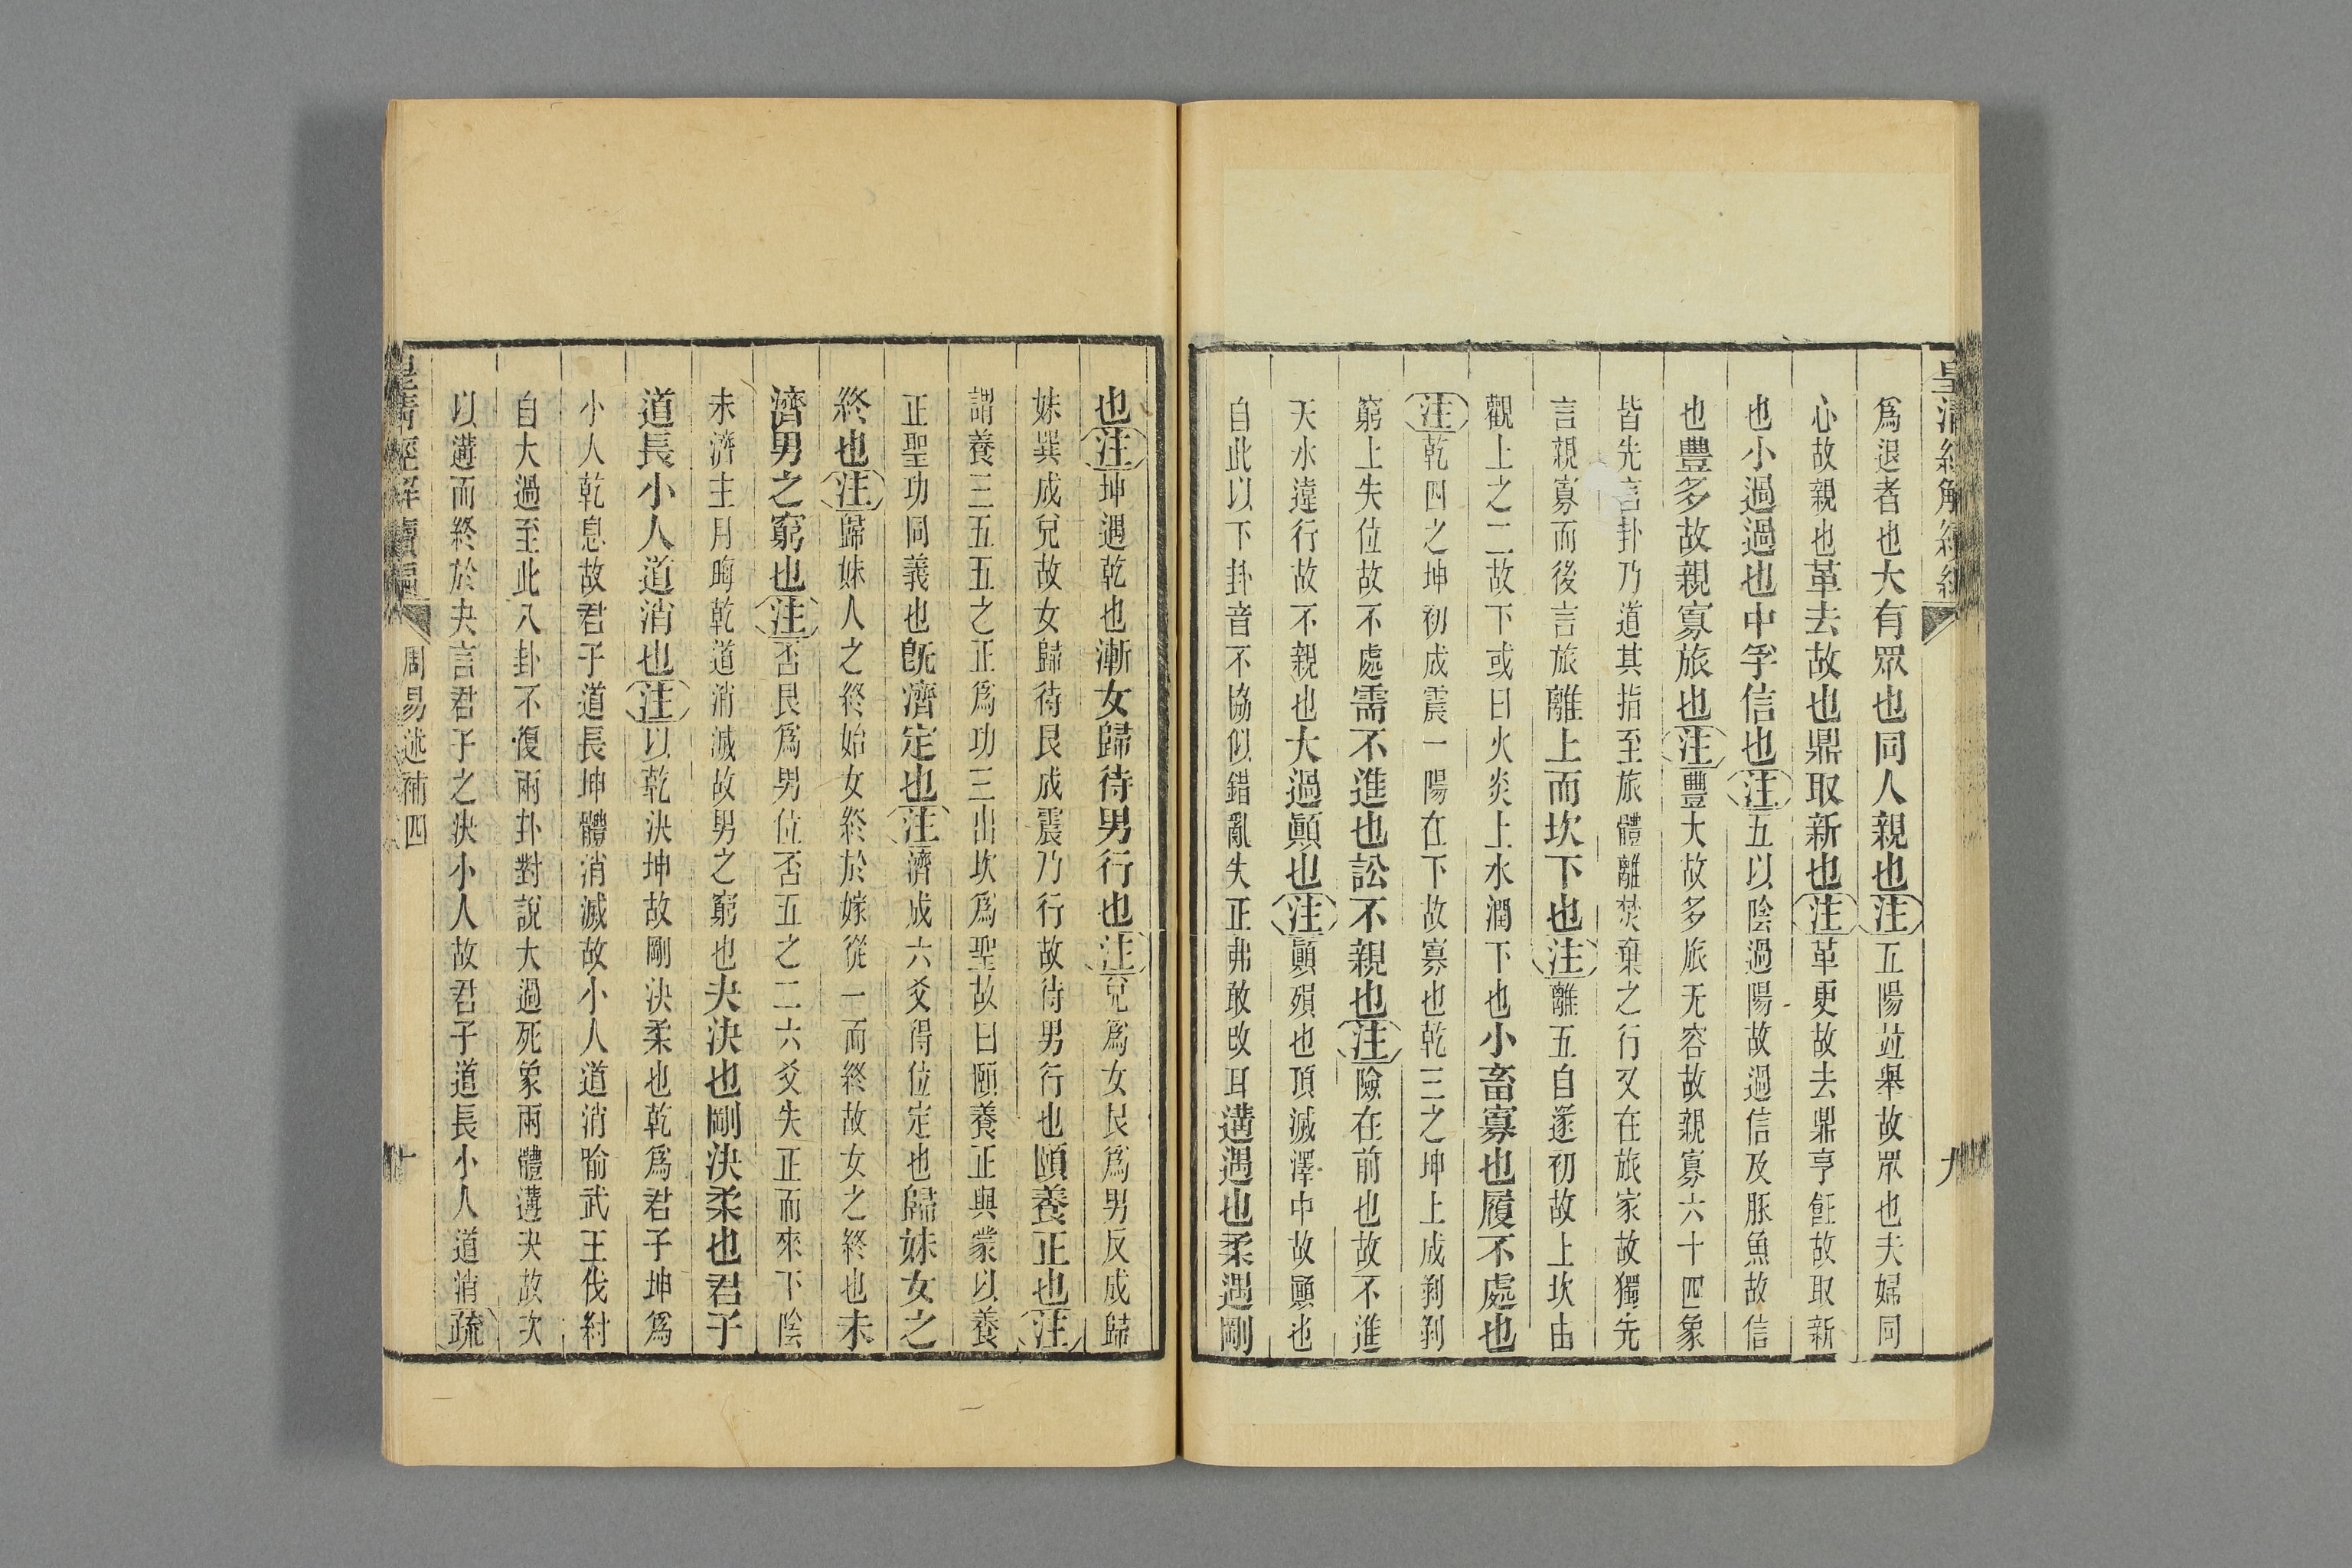 皇清經解續編
九
爲退者也大有眾也同人親也注五陽竝舉故眾也夫婦同
心故親也革去故也鼎取新也注革更故去鼎亨飪故取新
也小過過也中孚信也注五以陰過陽故過信及豚魚故信
也豐多故親寡旅也注豐大故多旅无容故親寡六十四象
皆先言卦乃道其指至旅體離焚棄之行又在旅家故獨先
言親寡而後言旅離上而坎下也注離五自遂初故上坎由
觀上之二故下或曰火炎上水潤下也小畜寡也履不處也
注乾四之坤初成震一陽在下故寡也乾三之坤上成剥剥
窮上失位故不處需不進也訟不親也注險在前也故不進
天水違行故不親也大過顚也注顚殞也頂滅澤中故顚也
自此以下卦音不協似錯亂失正弗敢改耳遘遇也柔遇剛
也注坤遇乾也漸女歸待男行也注兌爲女艮爲男反成歸
妹巽成兌故女歸待艮成震乃行故待男行也頤養正也注
謂養三五五之正爲功三出坎爲聖故曰頤養正與蒙以養
正聖功同義也旣濟定也注濟成六爻得位定也歸妹女之
終也注歸妹人之終始女終於嫁從一而終故女之終也未
濟男之窮也注否艮爲男位否五之二六爻失正而來下陰
未濟主月晦乾道消滅故男之窮也夬決也剛決柔也君子
道長小人道消也注以乾決坤故剛決柔也乾爲君子坤爲
小人乾息故君子道長坤體消滅故小人道消喻武王伐紂
自大過至此八卦不復兩卦對說大過死象兩體遘夬故次
以遘而終於夬言君子之決小人故君子道長小人道消疏
皇清經解續編
周易述補四
十